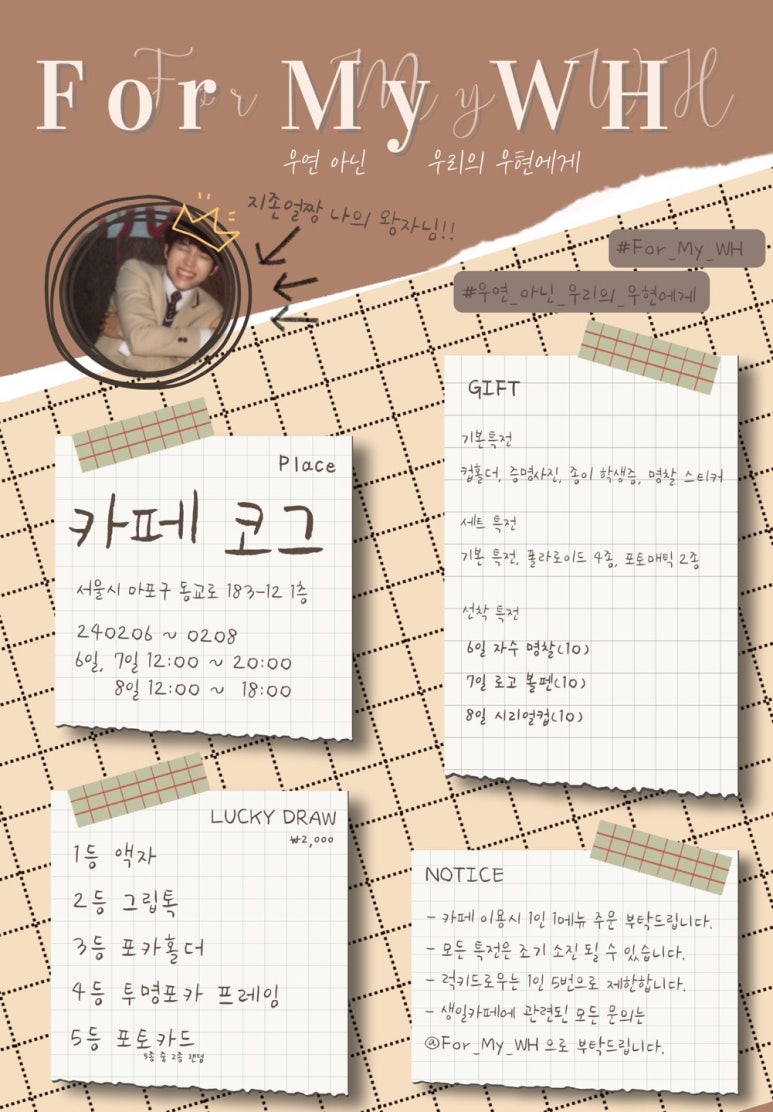 For My WH
For My WH
우연 아닌 우리의 우현에게
지존얼짱 나의 왕자님!!
#For_My_WH
#우연_아닌_우리의_우현에게
GIFT
기본특전
컵홀더, 증명사진, 종이 학생증, 명찰 스티커
세트 특전
기본 특전, 폴라로이드 4종, 포토매틱 2종
선착 특전
6일 자수 명찰(10)
7일 로고 볼펜(10)
8일 시리얼컵(10)
Place
카페 코그
서울시 마포구 동교로 183-12 1층
240206 ~ 0208
6일, 7일 12:00 ~ 20:00
8일 12:00 ~ 18:00
LUCKY DRAW
₩2,000
1등 액자
2등 그립톡
3등 포카홀더
4등 투명포카 프레임
5등 포토카드
5종 중 2종 랜덤
NOTICE
- 카페 이용시 1인 1메뉴 주문 부탁드립니다.
- 모든 특전은 조기 소진 될 수 있습니다.
- 럭키드로우는 1인 5번으로 제한합니다.
- 생일카페에 관련된 모든 문의는
@For_My_WH 으로 부탁드립니다.